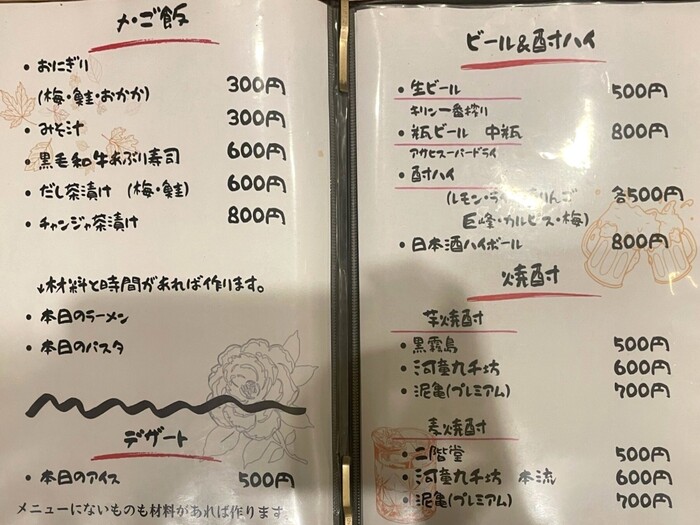 〆・ご飯
・おにぎり
(梅・鮭・おかか) 300円
・みそ汁 300円
・黒毛和牛あぶり寿司 600円
・だし茶漬け (梅・鮭) 600円
・チャンジャ茶漬け 800円
↓材料と時間があれば作ります。
・本日のラーメン
・本日のパスタ
デザート
・本日のアイス 500円
メニューにないものも材料があれば作ります
ビール&酎ハイ
・生ビール 500円
キリン一番搾り
・瓶ビール 中瓶 800円
アサヒスーパードライ
・酎ハイ
(レモン・ りんご 各500円
巨峰・カルピス・梅)
・日本酒ハイボール 800円
焼酎
芋焼酎
・黒霧島 500円
・河童九千坊 600円
・泥亀(プレミアム) 700円
麦焼酎
・二階堂 500円
・河童九千坊 本流 600円
・泥亀(プレミアム) 700円